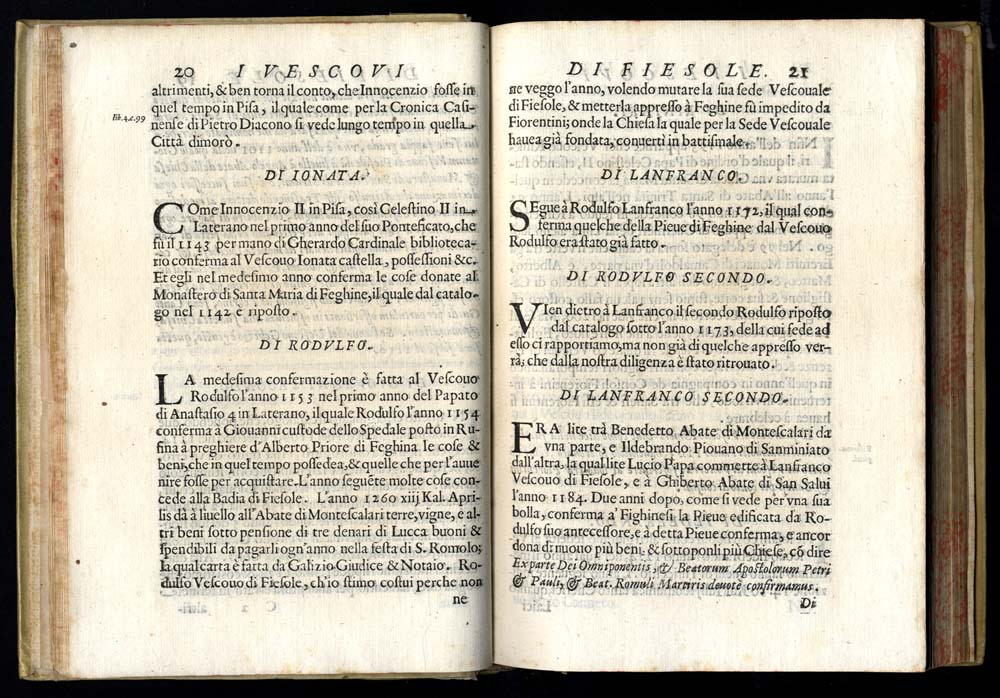 20 I VESCOVI
altrimenti, & ben torna il conto, che Innocenzio fosse in
quel tempo in Pisa, il quale come per la Cronica Casi-
lib.4.c.99
nense di Pietro Diacono si vede lungo tempo in quella
Città dimorò.
DI IONATA.
COme Innocenzio II in Pisa, così Celestino II in
Laterano nel primo anno del suo Ponteficato, che
fù il 1143 per mano di Gherardo Cardinale biblioteca-
rio conferma al Vescouo Ionata castella, possessioni &c.
Et egli nel medesimo anno conferma le cose donate al
Monastero di Santa Maria di Feghine, il quale dal catalo-
go nel 1142 è riposto.
DI RODVLFO.
LA medesima confermazione è fatta al Vescouo
Rodulfo l'anno 1153 nel primo anno del Papato
di Anastasio 4 in Laterano, il quale Rodulfo l'anno 1154
conferma à Giouanni custode dello Spedale posto in Ru-
fina à preghiere d'Alberto Priore di Feghina le cose &
beni, che in quel tempo possedea, & quelle che per l'auue
nire fosse per acquistare. L'anno seguẽte molte cose con-
cede alla Badia di Fiesole. L'anno 1260 xiij Kal. Apri-
lis dà à liuello all'Abate di Montescalari terre, vigne, e al-
tri beni sotto pensione di tre denari di Lucca buoni &
spendibili da pagarli ogn'anno nella festa di S. Romolo;
la qual carta è fatta da Galizio Giudice & Notaio. Ro-
dulfo Vescouo di Fiesole, ch'io stimo costui perche non
ne
DI FIESOLE. 21
ne veggo l'anno, volendo mutare la sua sede Vescouale
di Fiesole, & metterla appresso à Feghine fù impedito da
Fiorentini; onde la Chiesa la quale per la Sede Vescouale
hauea già fondata, conuerti in battisimale.
DI LANFRANCO.
SEgue à Rodulfo Lanfranco l'anno 1172, il qual con-
ferma quelche della Pieue di Feghine dal Vescouo
Rodulfo era stato già fatto.
DI RODVLFO SECONDO.
VIen dietro à Lanfranco il secondo Rodulfo riposto
dal catalogo sotto l'anno 1173, della cui sede ad
esso ci rapportiamo, ma non già di quelche appresso ver-
rà; che dalla nostra diligenza è stato ritrouato.
DI LANFRANCO SECONDO.
ERA lite trà Benedetto Abate di Montescalari da
vna parte, e Ildebrando Piouano di Sanminiato
dall'altra, la qual lite Lucio Papa commette à Lanfranco
Vescouo di Fiesole, e à Ghiberto Abate di San Salui
l'anno 1184. Due anni dopo, come si vede per vna sua
bolla, conferma a' Fighinesi la Pieue edificata da Ro-
dulfo suo antecessore, e à detta Pieue conferma, e ancor
dona di nuouo più beni, & sottoponli più Chiese, cõ dire
Ex parte Dei Omniponentis, & Beatorum Apostolorum Petri
& Pauli, & Beat. Romuli Martiris deuotè confirmamus.
Di